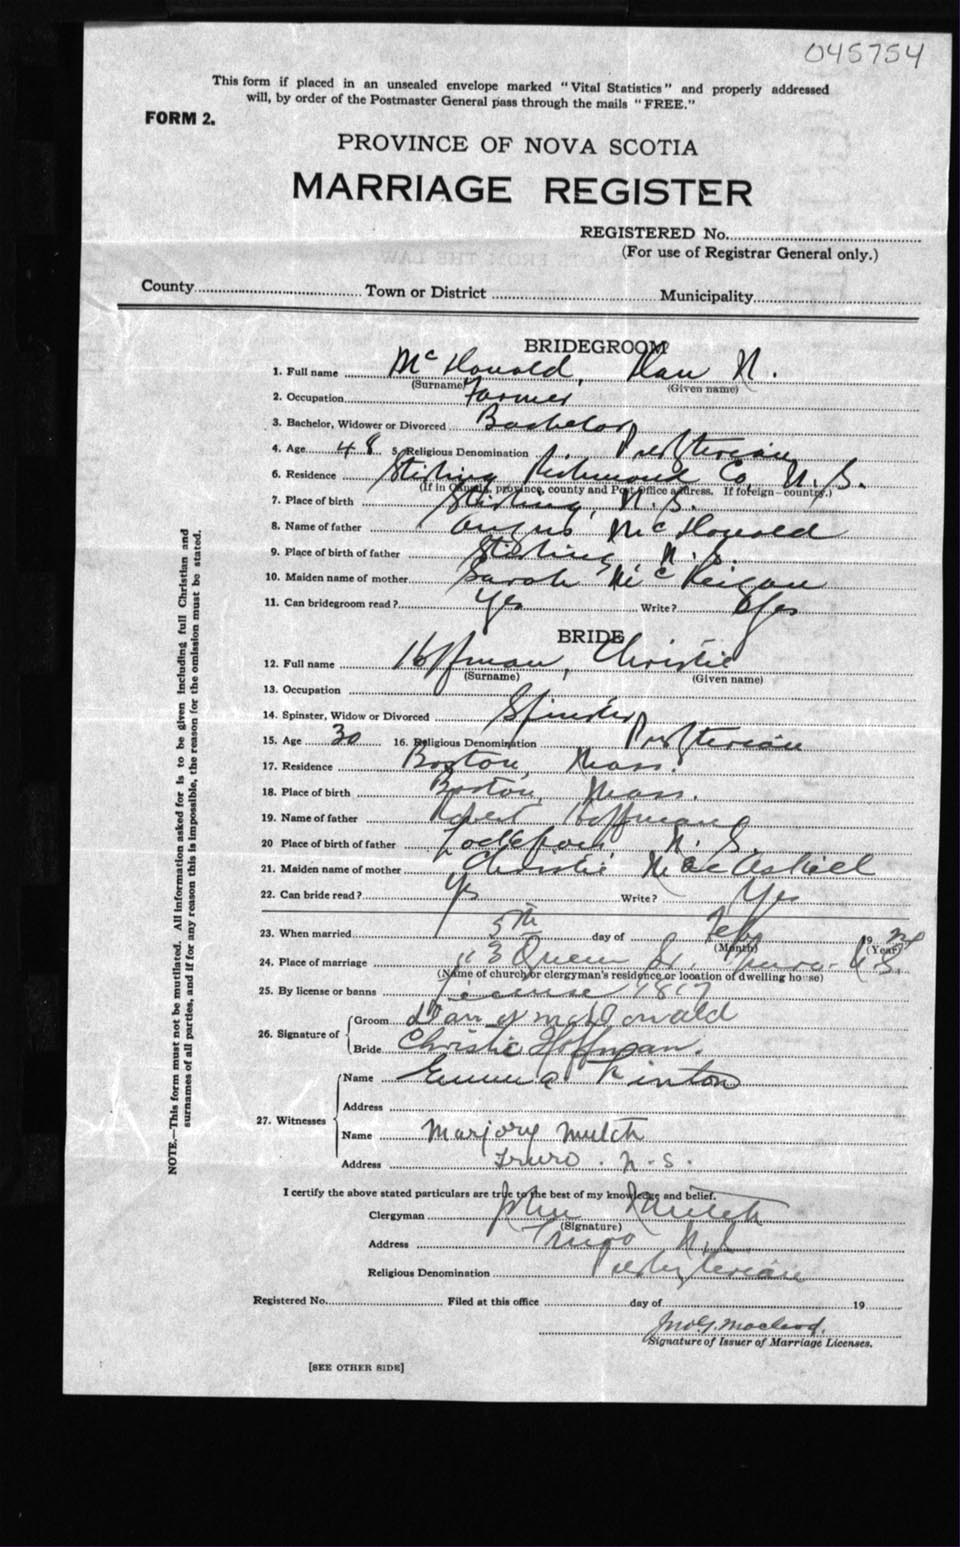 045754
This form if placed in an unsealed envelope marked "Vital Statistics" and properly addressed
will, by order of the Postmaster General pass through the mails "FREE."
FORM 2.
PROVINCE OF NOVA SCOTIA
MARRIAGE REGISTER
REGISTERED No.
(For use of Registrar General only.)
County Town or District Municipality
BRIDEGROOM
1. Full name McDonald, Dan
(Surname) (Given name)
2. Occupation Farmer
3. Bachelor, Widower or Divorced Bachelor
4. Age 48 5. Religious Denomination Presbyterian
6. Residence Stirling Richmond Co. N.S.
(If in Canada, province, county and Post Office address. If foreign—country.)
7. Place of birth Stirling, N.S.
8. Name of father Angus McDonald
9. Place of birth of father Stirling, N.S.
10. Maiden name of mother Sarah Mc
11. Can bridegroom read? Yes Write? Yes
BRIDE
12. Full name Hoffman, Christie
(Surname) (Given name)
13. Occupation
14. Spinster, Widow or Divorced Spinster
15. Age 30 16. Religious Denomination Presbyterian
17. Residence Boston, Mass.
18. Place of birth Boston, Mass.
19. Name of father Robert Hoffman
20 Place of birth of father Lockeport N.S.
21. Maiden name of mother Christie MacAskill
22. Can bride read? Yes Write? Yes
23. When married 5th day of Feby 19
(Month) (Year)
24. Place of marriage Queen St. Truro. N.S.
(Name of church or clergyman's residence or location of dwelling house)
25. By license or banns License
26. Signature of Groom Dan McDonald
Bride Christie Hoffman.
27. Witnesses Name Emma
Address
Name Marjory Mutch
Address Truro. N.S.
I certify the above stated particulars are true to the best of my knowledge and belief.
Clergyman John Mutch
(Signature)
Address Truro N.S.
Religious Denomination Presbyterian
Registered No. Filed at this office day of 19
Jno G. Macleod.
Signature of Issuer of Marriage Licenses.
[SEE OTHER SIDE]
NOTE.—This form must not be mutilated. All information asked for is to be given including full Christian and
surnames of all parties, and if for any reason this is impossible, the reason for the omission must be stated.